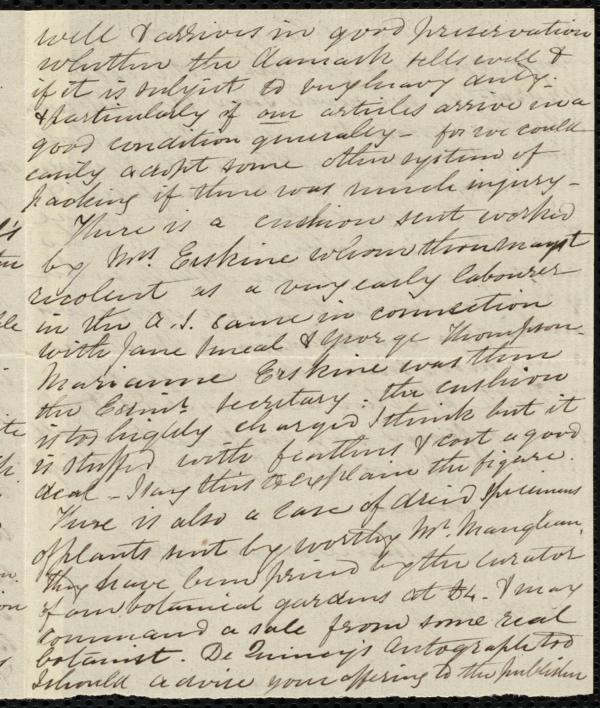 well & arrives in good preservation
whether the damask sells well &
if it is subject to very heavy duty -
& particularly if our articles arrive in a
good condition generally - for we could
easily adopt some other system of
packing if there was much injury -
There is a cushion sent worked
by Mrs. Erskine whom thou mayst
recollect as a very early labourer
in the A. S. cause in connection
with Jane Smeal & George Thompson -
Marianne Erskine was then
the Edinr. Secretary. the cushion
is too highly charged I think but it
is stuffed with feathers & cost a good
deal - I say this to explain the figure.
There is also a case of dried specimens
of plants sent by worthy Mr.
they have been priced by the curator
of our botanical gardens at £4. & may
command a sale from some real
botanist. De Quincey's Autograph too
I should advise your offering to the publisher